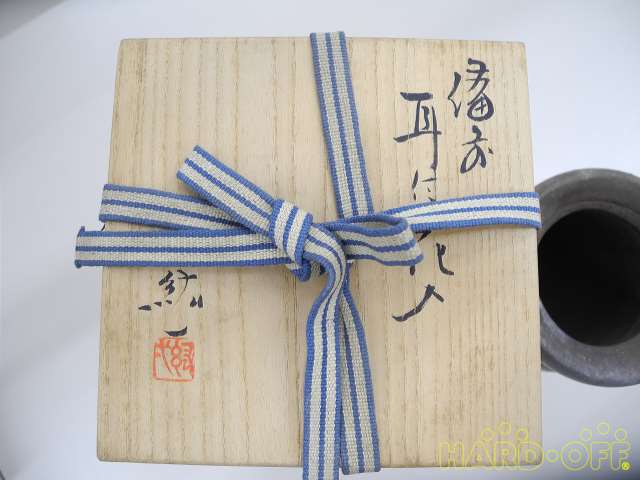 備前
耳付花入
紘一
HARD·OFF®